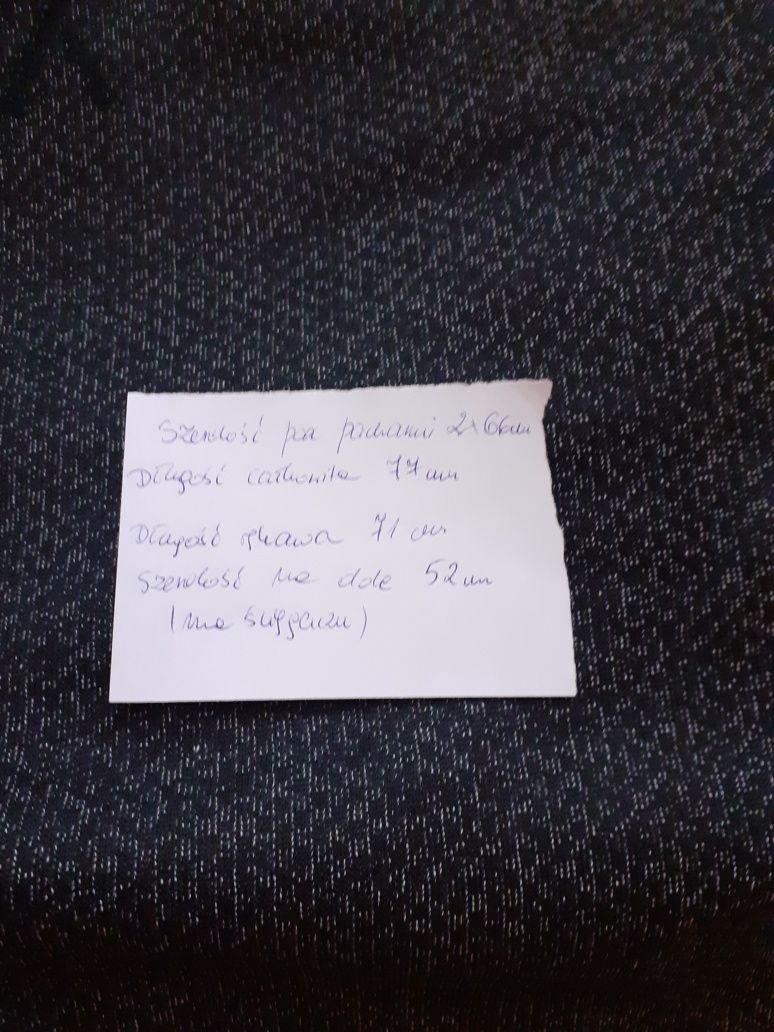 Szerokość pod pachami 2x66cm
Długość całkowita 77cm
Długość rękawa 71 cm
Szerokość na dole 52cm
(na ściągaczu)